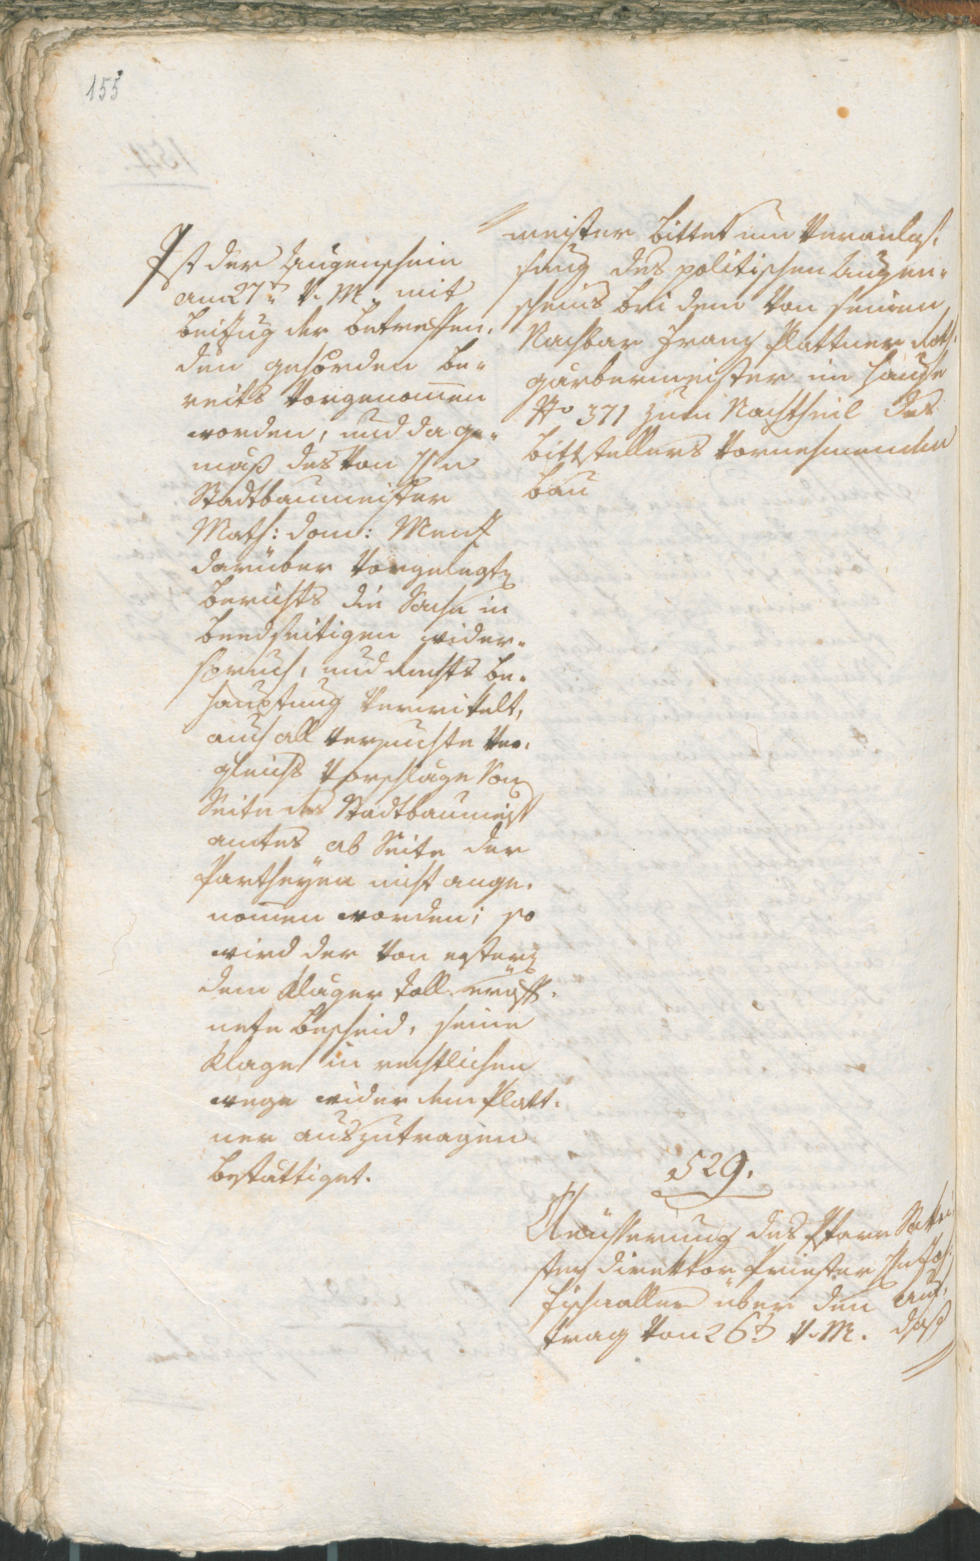 155
Ist der Augenschein
am 27t. v. M. mit
Beizug der betreffen-
den gehörden be-
reits vorgenommen
worden, und da ge-
mäß des von Hrn
Stadtbaumeister
Math: Dom:
darüber vorgelegten
Berichts die Sache in
beedseitigen wider-
spruch, und Rechts be-
hauptung verwikelt,
auch all versuchte Ver-
gleichs Vorschläge von
Seite des Stadtbaumeist
amtes ab Seite der
Partheyen nicht ange-
nommen worden; so
wird der von ersterm
dem Kläger Toll eröff-
nete Bescheid, seine
Klage in rechtlichen
wege wider dem Platt-
ner auszutragen
bestättiget.
meister bittet um Veranlas-
sung des politischen Augen-
scheins bei dem von seinem
Nachbar Franz Plattner Roth-
gärbermeister im Hause
No 371 zum Nachtheil des
Bittstellers vornehmenden
Bau
529.
Aeusserung des Pfarr
ster Direktor Priester
über den Auf-
trag von 26t. v. M. daß